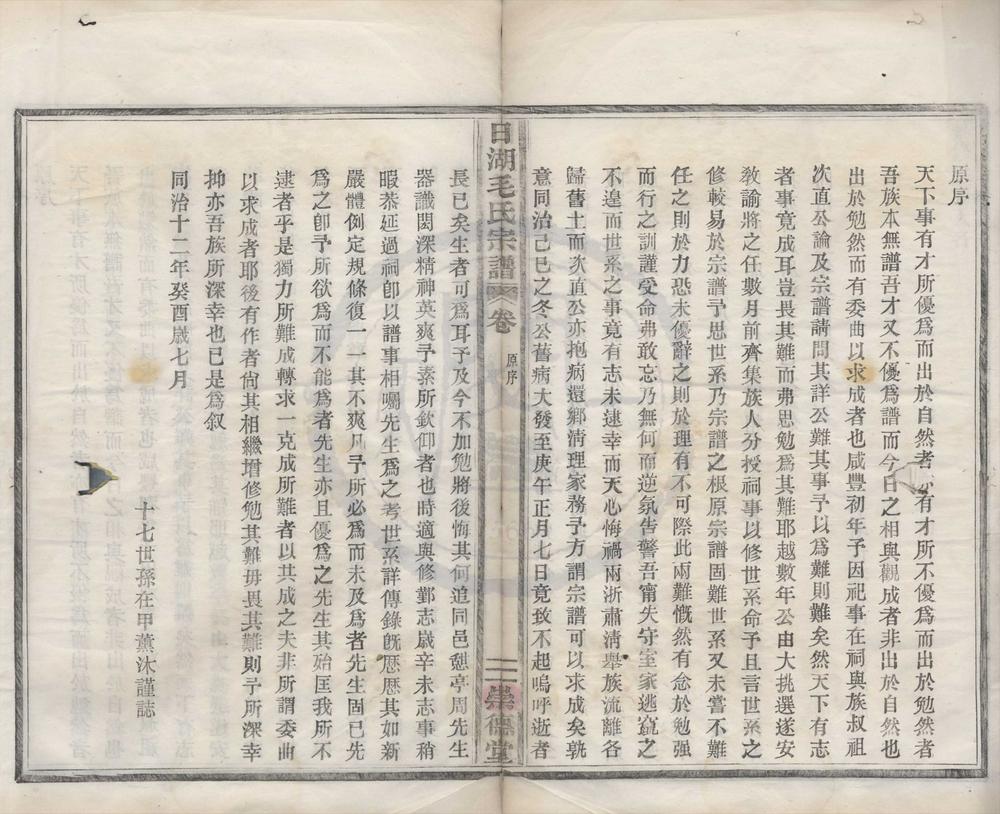 原序
天下事有才所優爲而出於自然者亦有才所不優爲而出於勉然者
吾族本無譜吾才又不優爲譜而今日之相與觀成者非出於自然也
出於勉然而有委曲以求成者也咸豐初年予因祀事在祠與族叔祖
次直公論及宗譜請問其詳公難其事予以爲難則難矣然天下有志
者事竟成耳豈畏其難而弗思勉爲其難耶越數年公由大挑選遂安
敎諭將之任數月前齊集族人分授祠事以修世系命予且言世系之
修較易於宗譜予思世系乃宗譜之根原宗譜固難世系又未嘗不難
任之則於力恐未優辭之則於理有不可際此兩難慨然有念於勉强
而行之訓謹受命弗敢忘乃無何而逆氛告警吾甯失守室家逃竄之
不遑而世系之事竟有志未逮幸而天心悔禍兩浙肅清舉族流離各
歸舊土而次直公亦抱病還鄉淸理家務予方謂宗譜可以求成矣孰
意同治己巳之冬公舊病大發至庚午正月七日竟致不起嗚呼逝者
日湖毛氏宗譜 卷 原序 二 崇德堂
長已矣生者可爲耳予及今不加勉將後悔其何追同邑憩亭周先生
器識閎深精神英爽予素所欽仰者也時適與修鄞志歲辛未志事稍
暇恭延過祠卽以譜事相囑先生爲之考世系詳傳錄旣歷歷其如新
嚴體例定規條復一一其不爽凡予所必爲而未及爲者先生固已先
爲之卽予所欲爲而不能爲者先生亦且優爲之先生其殆匡我所不
逮者乎是獨力所難成轉求一克成所難者以共成之夫非所謂委曲
以求成者耶後有作者尙其相繼增修勉其難毋畏其難則予所深幸
抑亦吾族所深幸也已是爲叙
同治十二年癸酉歲七月
十七世孫在甲薰沐謹誌